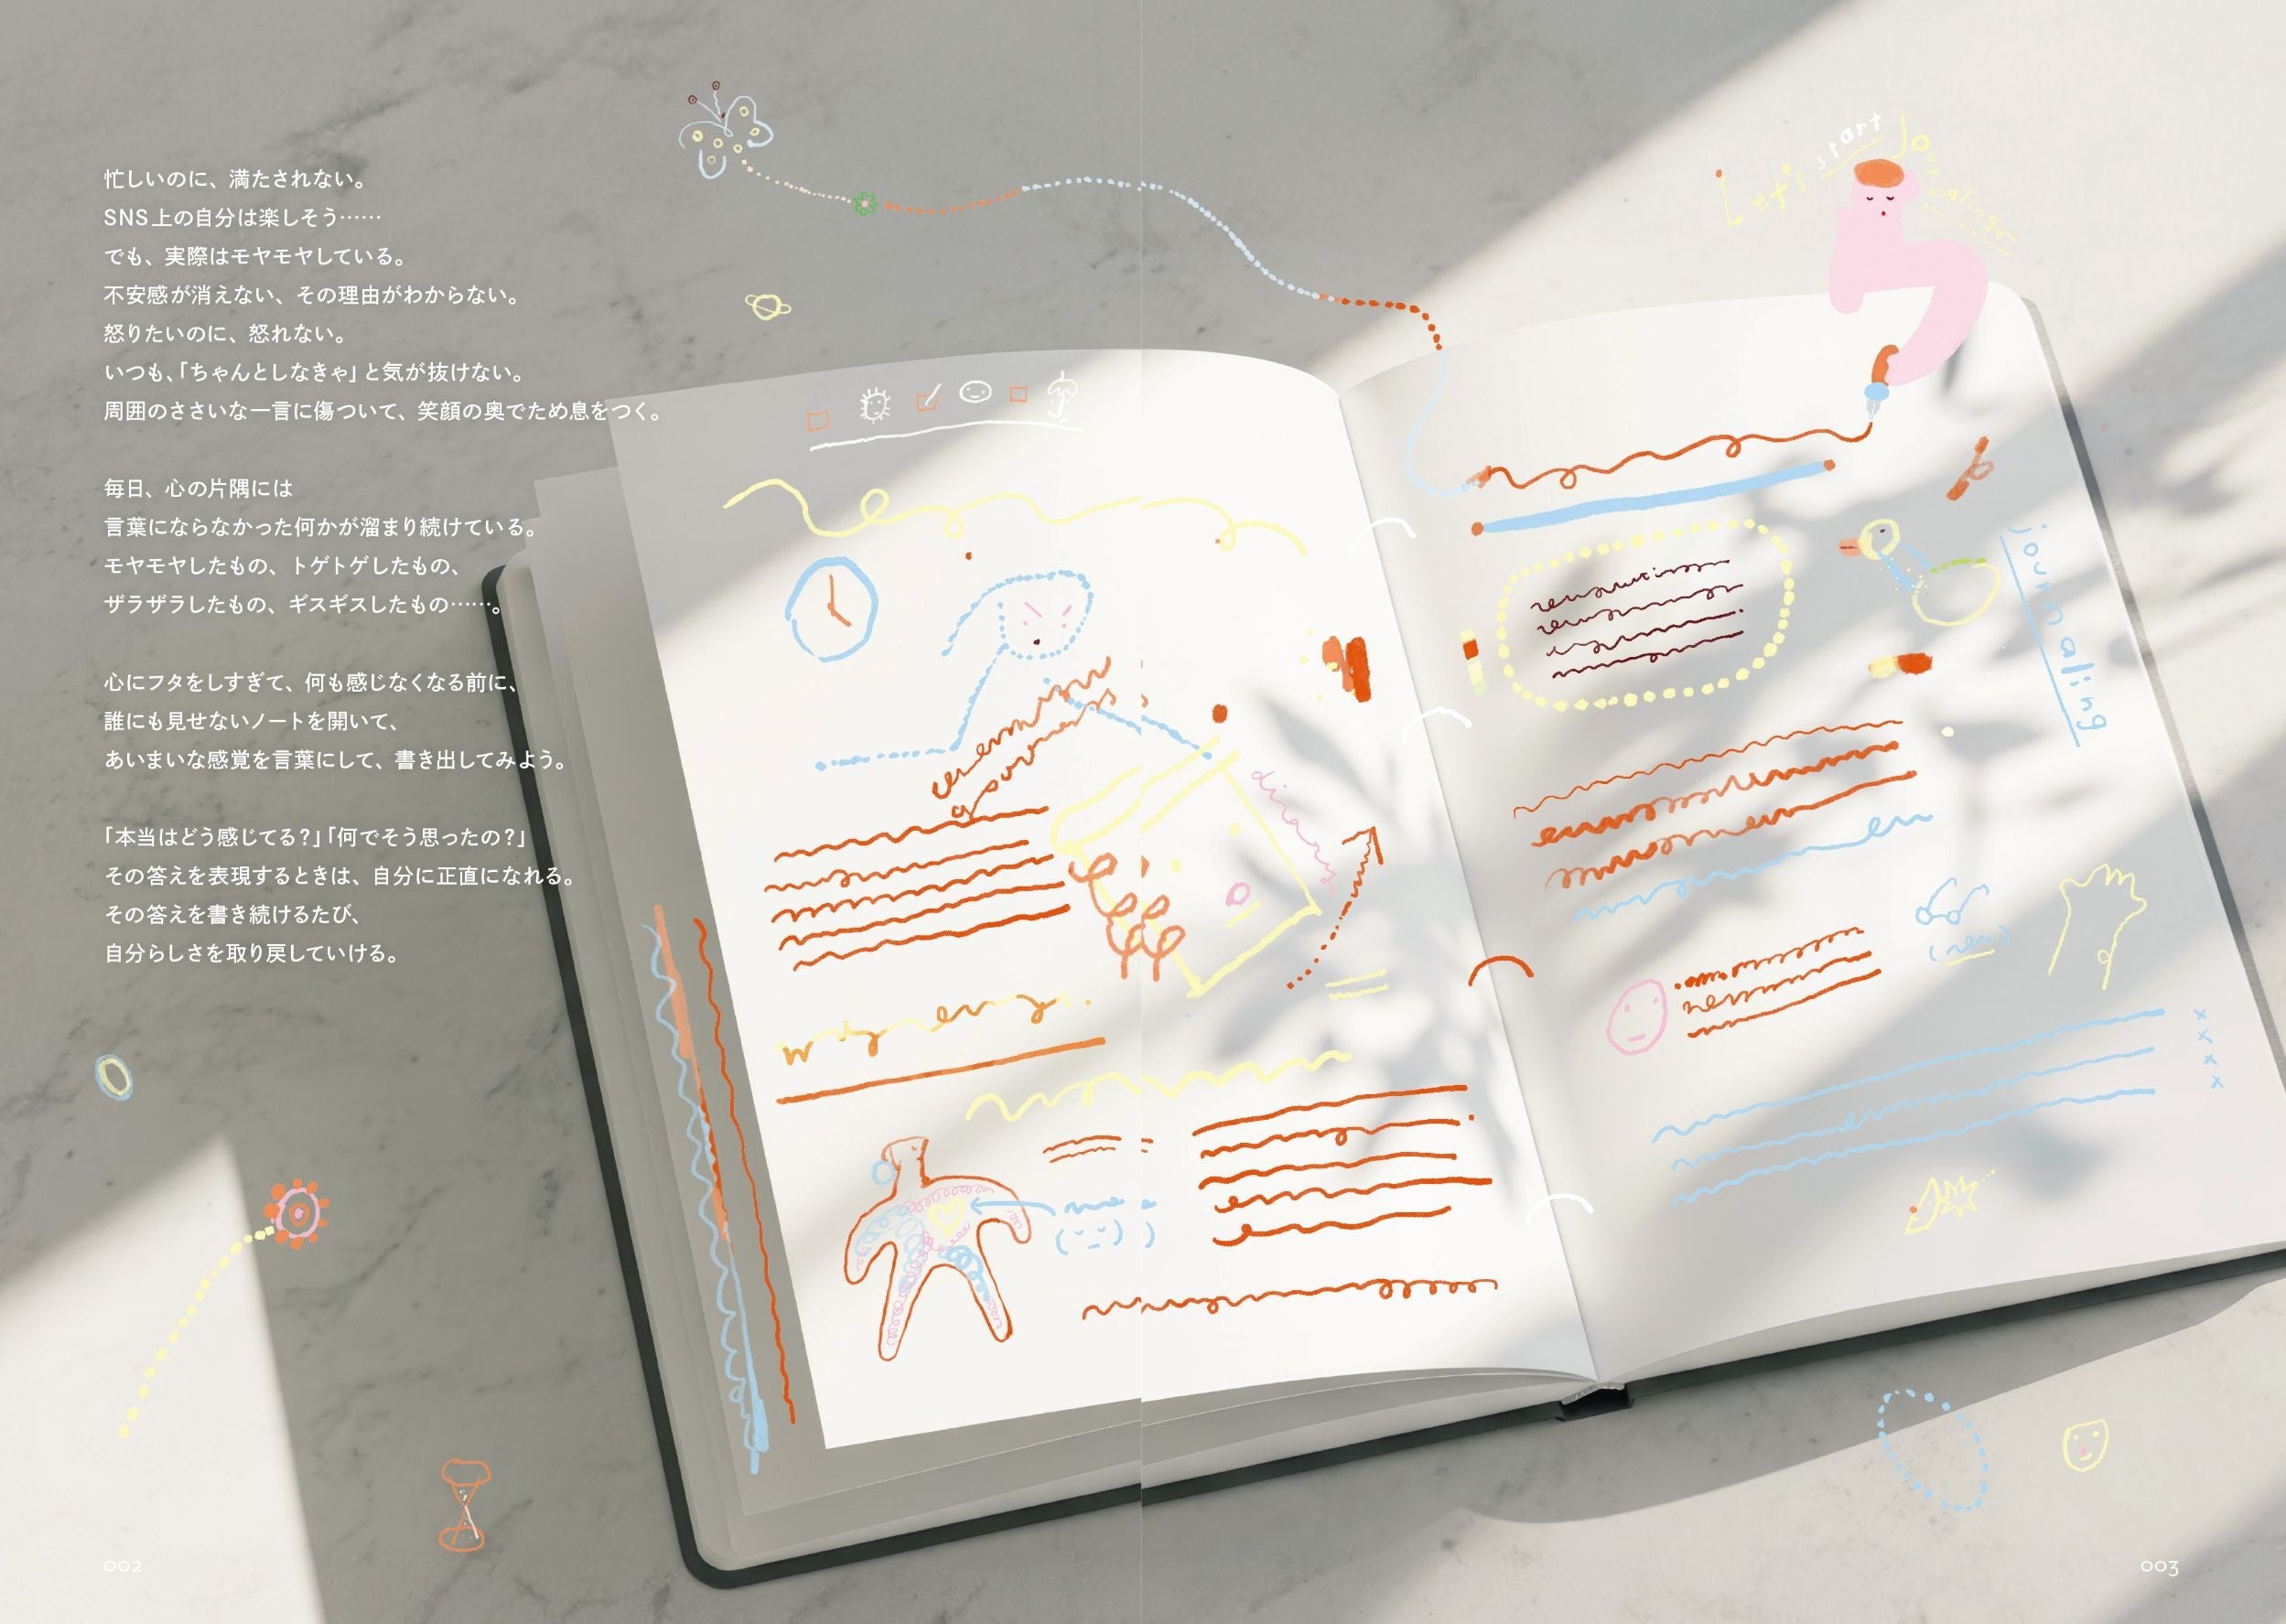 忙しいのに、満たされない。
SNS上の自分は楽しそう……
でも、実際はモヤモヤしている。
不安感が消えない、その理由がわからない。
怒りたいのに、怒れない。
いつも、「ちゃんとしなきゃ」と気が抜けない。
周囲のささいな一言に傷ついて、笑顔の奥でため息をつく。
毎日、心の片隅には
言葉にならなかった何かが溜まり続けている。
モヤモヤしたもの、トゲトゲしたもの、
ザラザラしたもの、ギスギスしたもの……。
心にフタをしすぎて、何も感じなくなる前に、
誰にも見せないノートを開いて、
あいまいな感覚を言葉にして、書き出してみよう。
「本当はどう感じてる?」「何でそう思ったの?」
その答えを表現するときは、自分に正直になれる。
その答えを書き続けるたび、
自分らしさを取り戻していける。
002
Let's start Journaling
journaling
diary
003